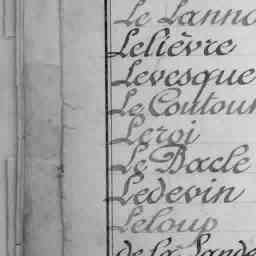 Le Lanno
Lelièvre
Levesque
Le Coutour
Leroi
Le Dacle
Ledevin
Leloup
de la Lande